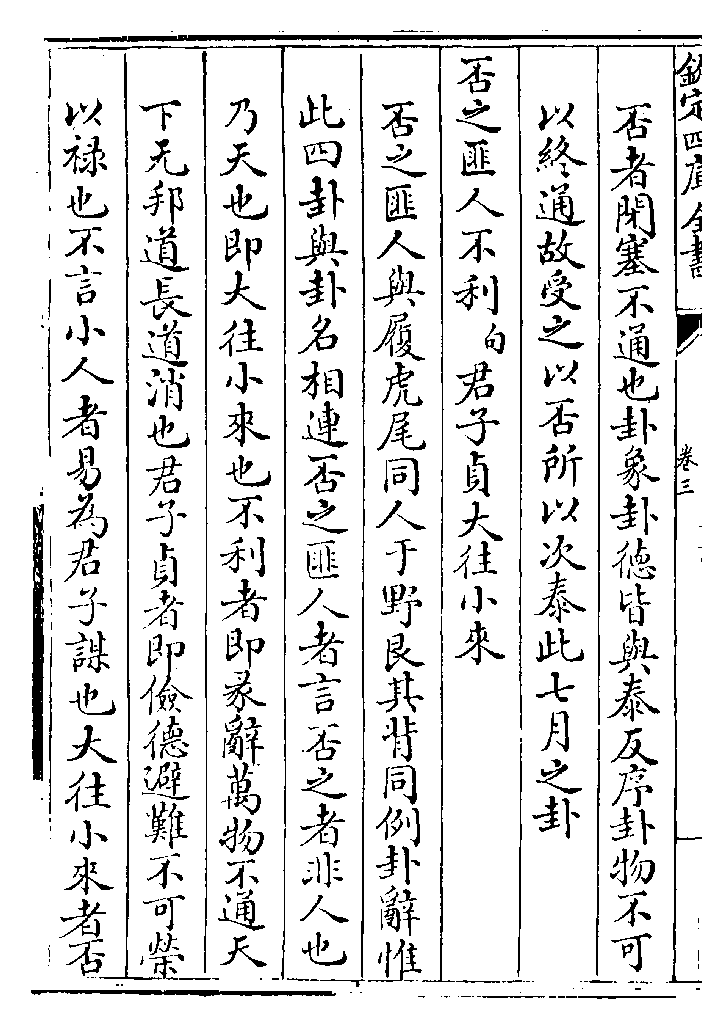 欽定四庫全書
卷三
否者閉塞不通也卦象卦徳皆與泰反序卦物不可
以終通故受之以否所以次泰此七月之卦
否之匪人不利句君子貞大往小來
否之匪人與履虎尾同人于野艮其背同例卦辭惟
此四卦與卦名相連否之匪人者言否之者非人也
乃天也即大往小來也不利者即彖辭萬物不通天
下无邦道長道消也君子貞者即儉徳避難不可榮
以禄也不言小人者易為君子謀也大往小來者否